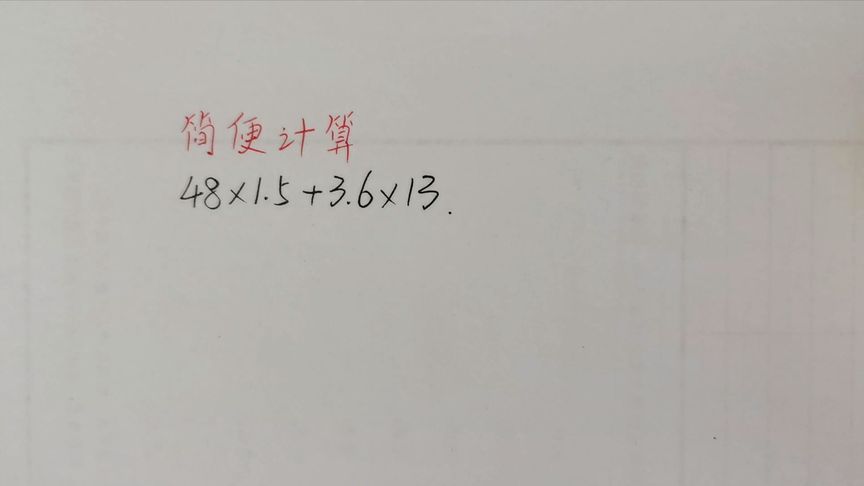 简便计算
48×1.5+3.6×13.